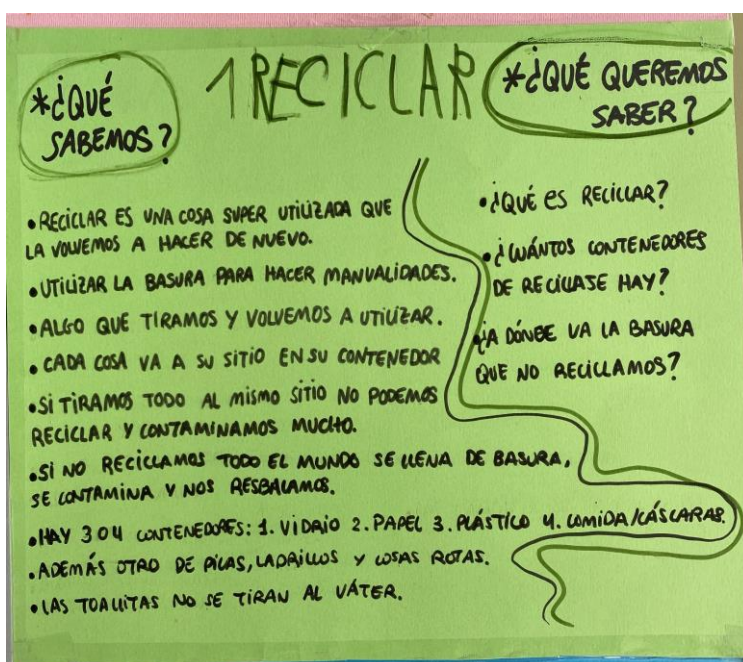 *¿QUÉ
SABEMOS?
1 RECICLAR
*¿QUÉ QUEREMOS
SABER?
• RECICLAR ES UNA COSA SUPER UTILIZADA QUE
LA VOLVEMOS A HACER DE NUEVO.
• UTILIZAR LA BASURA PARA HACER MANUALIDADES.
• ALGO QUE TIRAMOS Y VOLVEMOS A UTILIZAR.
• CADA COSA VA A SU SITIO EN SU CONTENEDOR
• SI TIRAMOS TODO AL MISMO SITIO NO PODEMOS
RECICLAR Y CONTAMINAMOS MUCHO.
• SI NO RECICLAMOS TODO EL MUNDO SE LLENA DE BASURA,
SE CONTAMINA Y NOS RESBALAMOS.
• HAY 3 O 4 CONTENEDORES: 1. VIDRIO 2. PAPEL 3. PLÁSTICO 4. COMIDA/CÁSCARAS.
• ADEMÁS OTRO DE PILAS, LADRILLOS Y COSAS ROTAS.
• LAS TOALLITAS NO SE TIRAN AL VÁTER.
• ¿QUÉ ES RECICLAR?
• ¿CUÁNTOS CONTENEDORES
DE RECICLAJE HAY?
• ¿A DÓNDE VA LA BASURA
QUE NO RECICLAMOS?